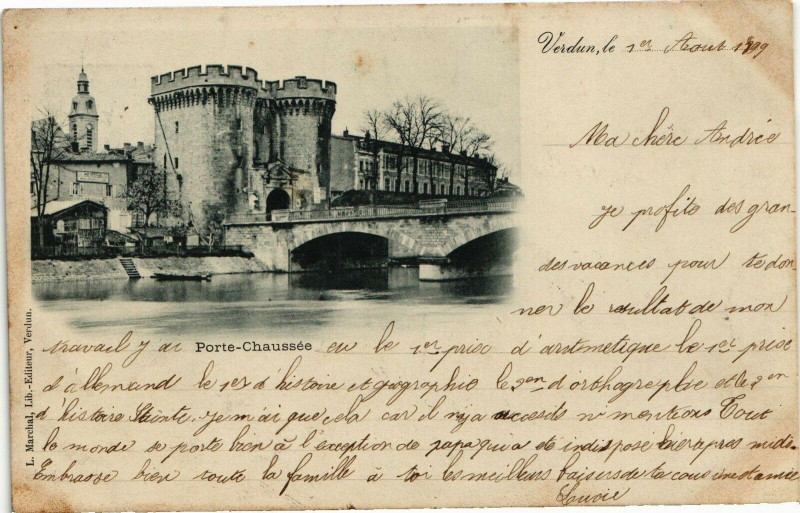 Verdun, le 1er Aout 1899
Ma chère Andrée
je profite des gran-
des vacances pour te don-
ner le resultat de mon
travail j ai eu le 1er prise d'aritmetique le 1er prise
d'allemand le 1er d'histoire et geographie le 2en d'orthographe et le 2en
d'histoire Sainte. je n'ai que cela car il n'y a ni mentions Tout
le monde se porte bien à l'exception de papa qui a été indisposé hier apres midi.
Embrasse bien toute la famille à toi les meilleurs baisers de ta cousine et amie
Porte-Chaussée
L. Marchal, Lib.-Editeur, Verdun.